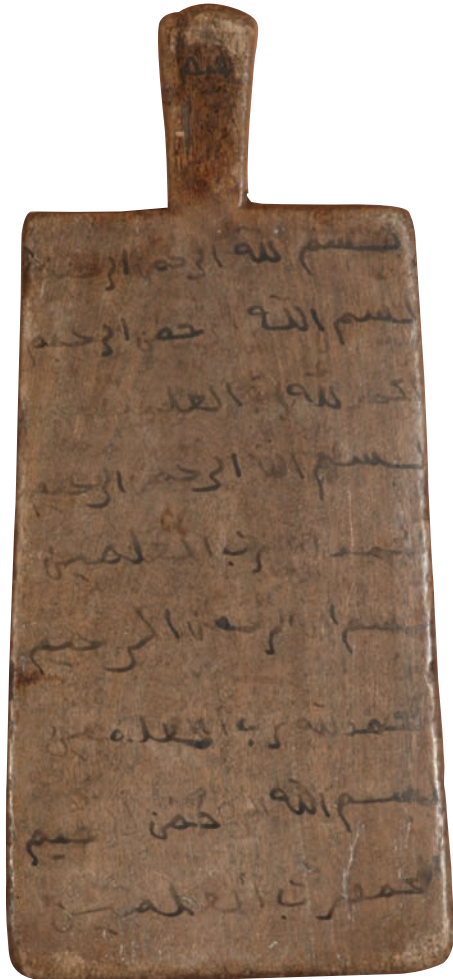 بسم لله الرحمن الرحيم
بسم الله حمن الرحيم
الحمد لله العلـ
بسم الله الرحمن الرحيم
الحمد رب العلمين
بسم الرحمن الرحيم
الحمد لله رب العلمين
بسم الله حمن حيم
الحمد رب العلمين